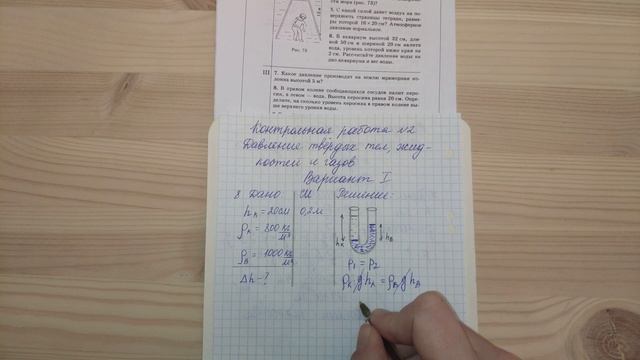 ти моря (рис. 73)?
5. С какой силой давит воздух на по-
верхность страницы тетради, разме-
ры которой 16 × 20 см? Атмосферное
давление нормальное.
6. В аквариум высотой 32 см, дли-
ной 50 см и шириной 20 см налита
вода, уровень которой ниже края на
2 см. Рассчитайте давление воды на
дно аквариума и вес воды.
Рис. 73
III 7. Какое давление производит на землю мраморная ко-
лонна высотой 5 м?
8. В правом колене сообщающихся сосудов налит керо-
син, в левом — вода. Высота керосина равна 20 см. Опре-
делите, на сколько уровень керосина в правом колене вы-
ше верхнего уровня воды.
Контрольная работа №2
Давление твёрдых тел, жид-
костей и газов
Вариант I
8 Дано СИ Решение:
hк = 20см 0,2м
ρк = 800 кг/м³
ρв = 1000 кг/м³
Δh - ?
hк hв
p₁ = p₂
ρк g hк = ρв g hв